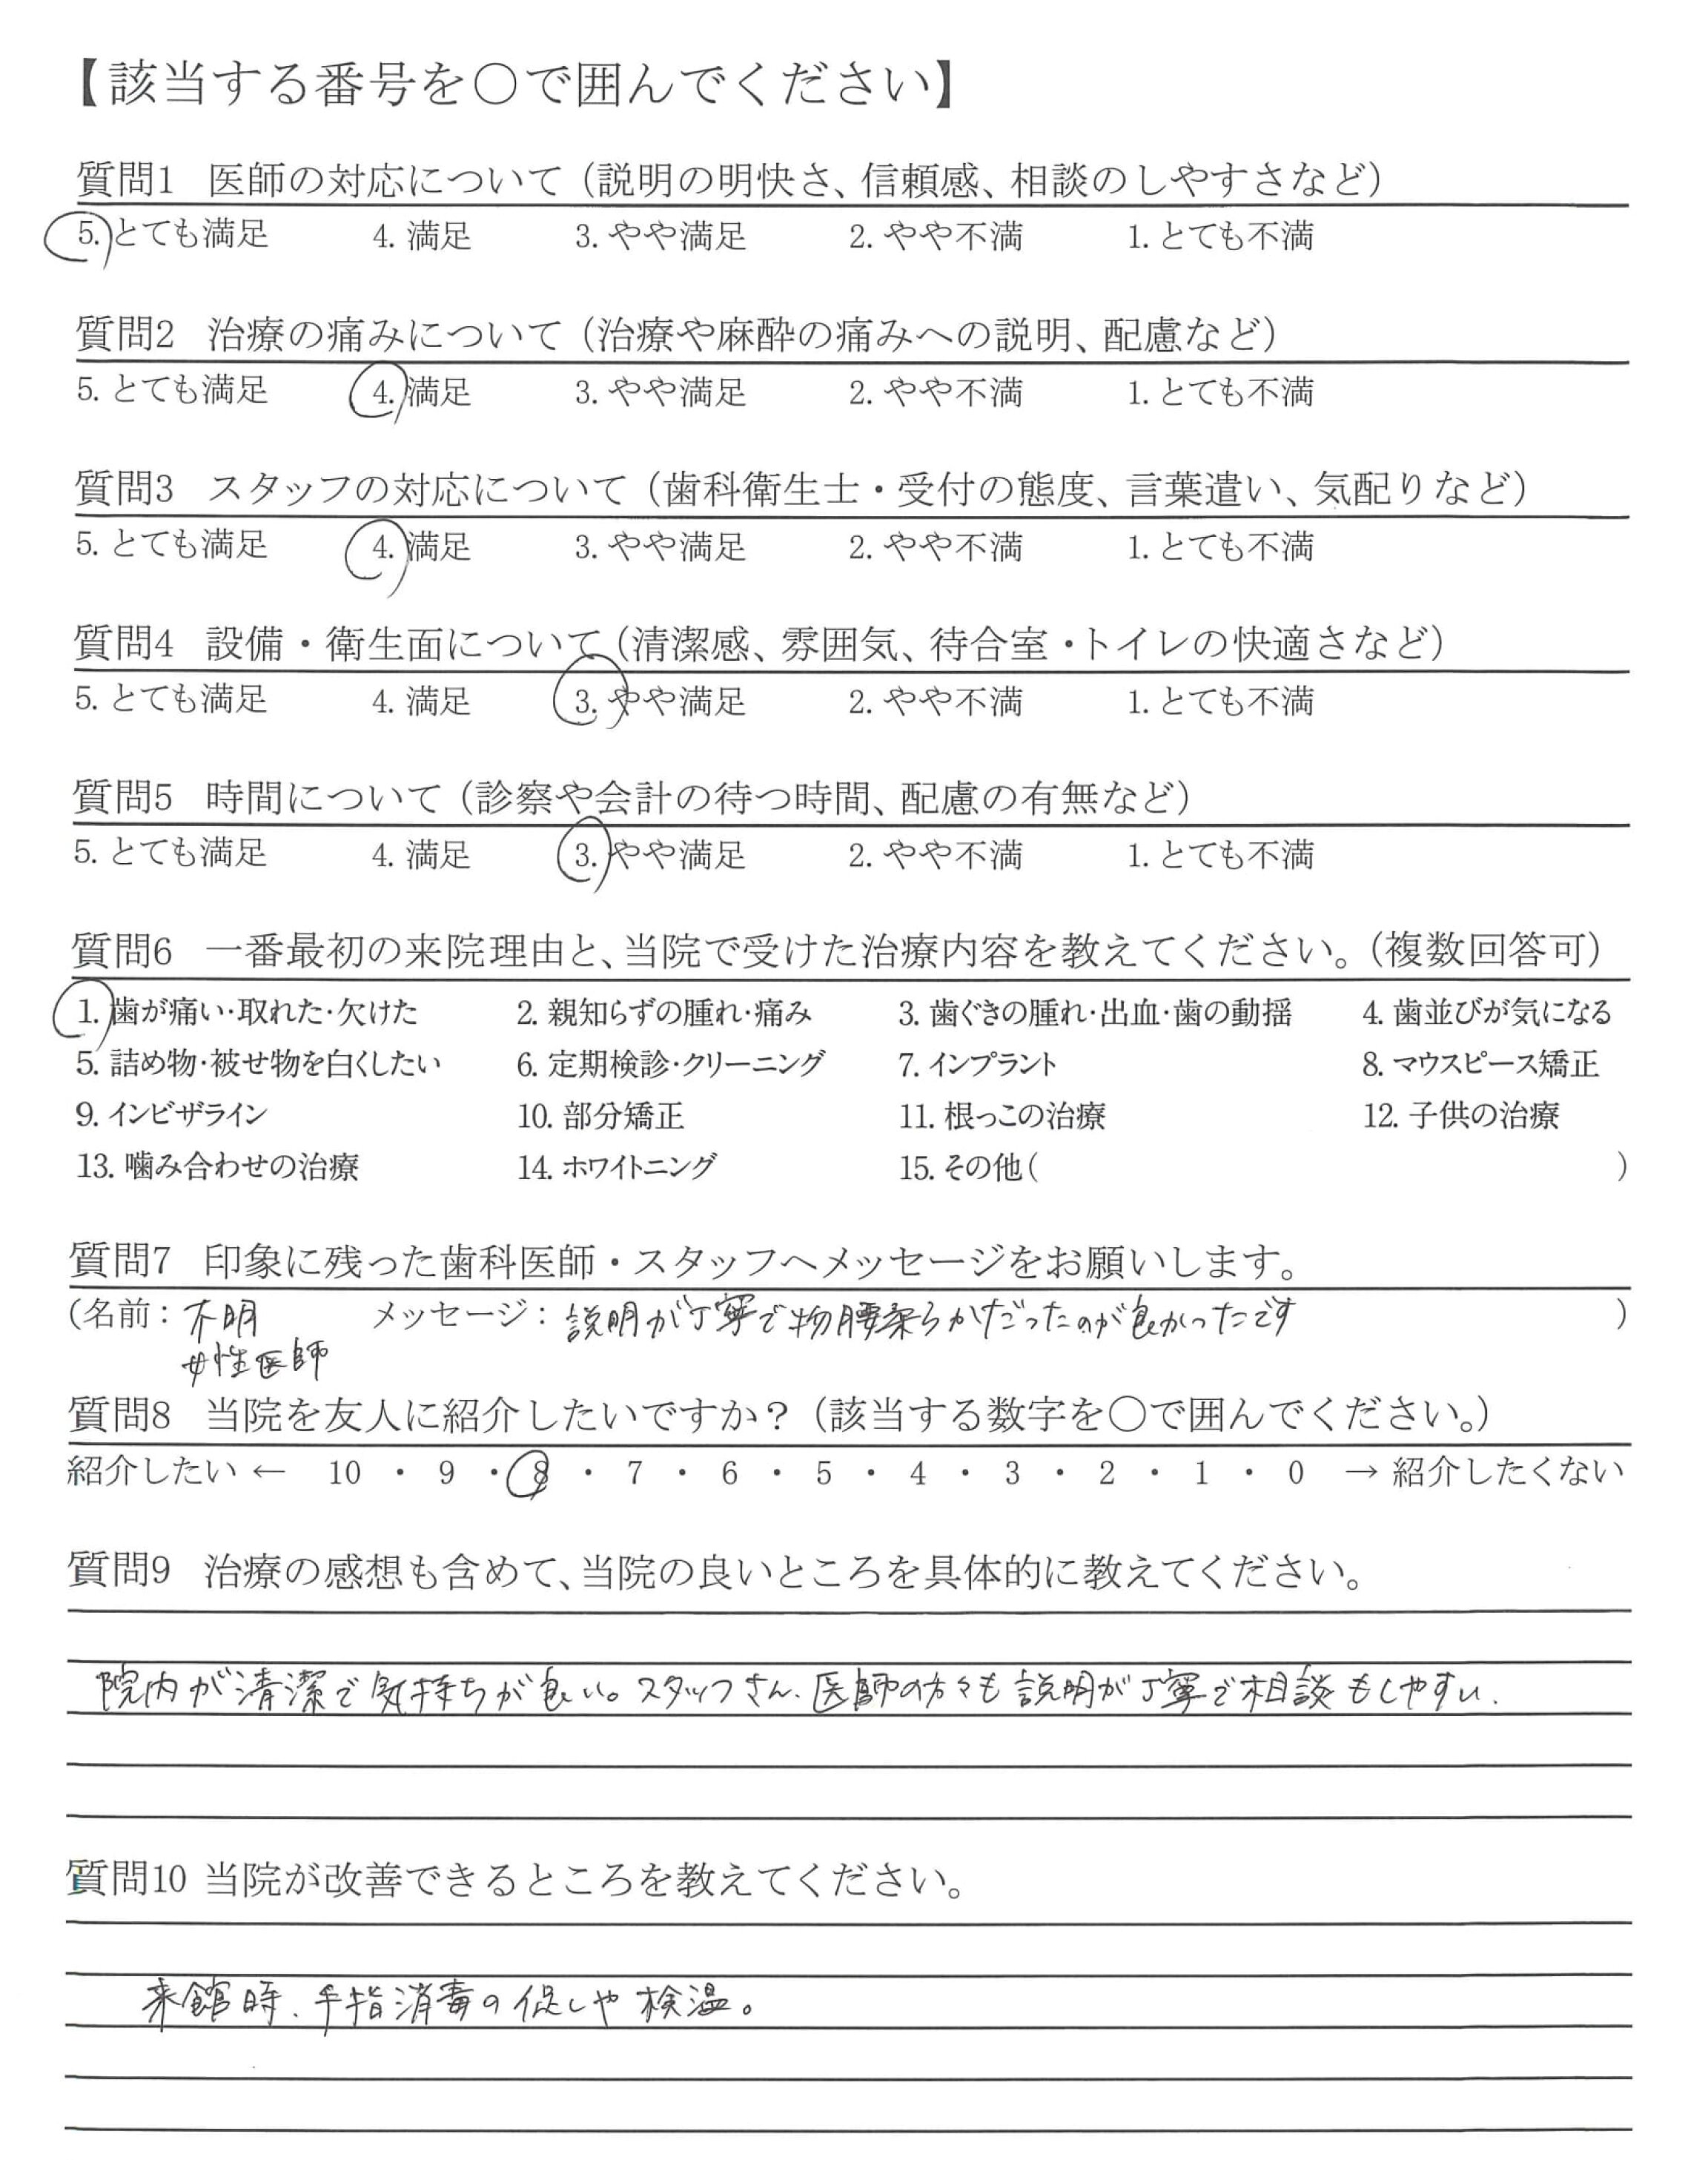 【該当する番号を○で囲んでください】
質問1 医師の対応について（説明の明快さ、信頼感、相談のしやすさなど）
5. とても満足 4. 満足 3. やや満足 2. やや不満 1. とても不満
質問2 治療の痛みについて（治療や麻酔の痛みへの説明、配慮など）
5. とても満足 4. 満足 3. やや満足 2. やや不満 1. とても不満
質問3 スタッフの対応について（歯科衛生士・受付の態度、言葉遣い、気配りなど）
5. とても満足 4. 満足 3. やや満足 2. やや不満 1. とても不満
質問4 設備・衛生面について（清潔感、雰囲気、待合室・トイレの快適さなど）
5. とても満足 4. 満足 3. やや満足 2. やや不満 1. とても不満
質問5 時間について（診察や会計の待つ時間、配慮の有無など）
5. とても満足 4. 満足 3. やや満足 2. やや不満 1. とても不満
質問6 一番最初の来院理由と、当院で受けた治療内容を教えてください。（複数回答可）
1. 歯が痛い・取れた・欠けた 2. 親知らずの腫れ・痛み 3. 歯ぐきの腫れ・出血・歯の動揺 4. 歯並びが気になる
5. 詰め物・被せ物を白くしたい 6. 定期検診・クリーニング 7. インプラント 8. マウスピース矯正
9. インビザライン 10. 部分矯正 11. 根っこの治療 12. 子供の治療
13. 噛み合わせの治療 14. ホワイトニング 15. その他（ ）
質問7 印象に残った歯科医師・スタッフへメッセージをお願いします。
（名前：不明 メッセージ：説明が丁寧で物腰柔らかだったのが良かったです ）
女性医師
質問8 当院を友人に紹介したいですか？（該当する数字を○で囲んでください。）
紹介したい ← 10 ・ 9 ・ 8 ・ 7 ・ 6 ・ 5 ・ 4 ・ 3 ・ 2 ・ 1 ・ 0 → 紹介したくない
質問9 治療の感想も含めて、当院の良いところを具体的に教えてください。
院内が清潔で気持ちが良い。スタッフさん、医師の方々も説明が丁寧で相談もしやすい．
質問10 当院が改善できるところを教えてください。
来館時、手指消毒の促しや検温。